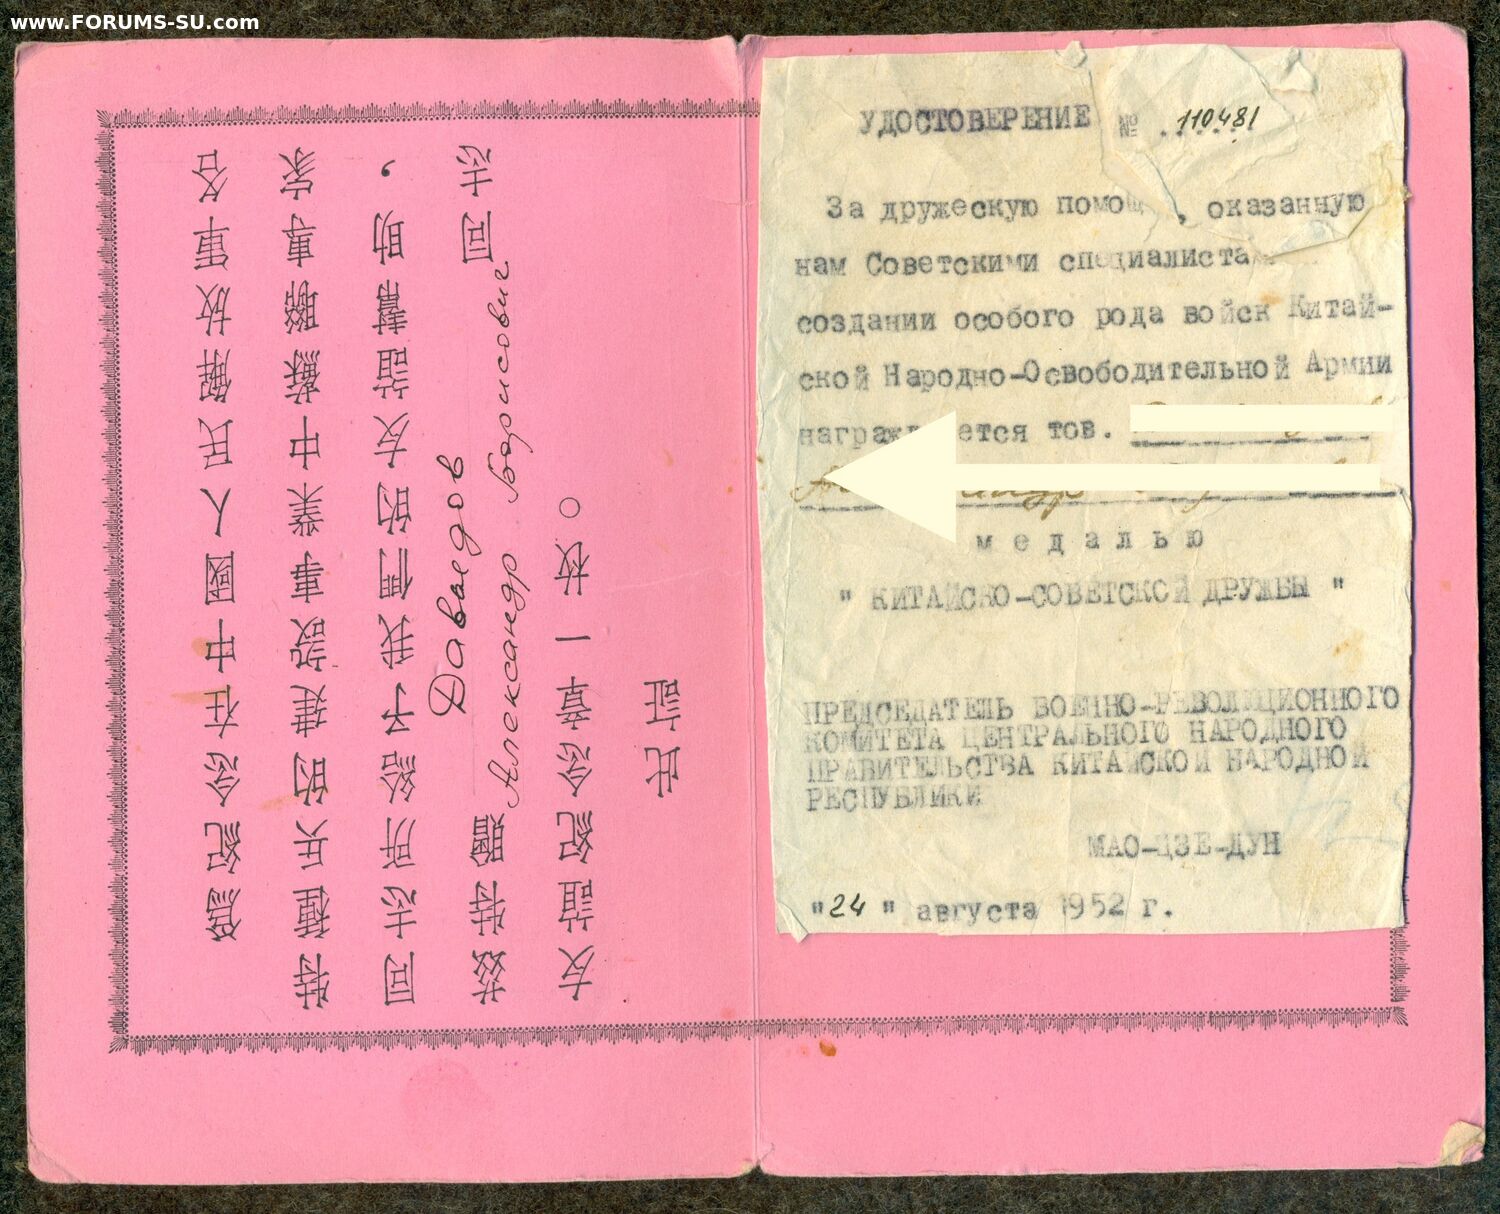 www.FORUMS-SU.com
為紀念在中國人民解放軍各
特種兵的建設事業中蘇聯專家
同志所給予我們的友誼幫助，
茲特贈 Давыдов Александр Борисович 同志
友誼紀念章一枚。
此証
УДОСТОВЕРЕНИЕ № 110481
За дружескую помощ , оказанную
нам Советскими специалиста
создании особого рода войск Китай-
ской Народно-Освободительной Армии
награждается тов.
медалью
" КИТАЙСКО-СОВЕТСКОЙ ДРУЖБЫ "
ПРЕДСЕДАТЕЛЬ ВОЕННО-РЕВОЛЮЦИОННОГО
КОМИТЕТА ЦЕНТРАЛЬНОГО НАРОДНОГО
ПРАВИТЕЛЬСТВА КИТАЙСКОЙ НАРОДНОЙ
РЕСПУБЛИКИ
МАО-ЦЗЕ-ДУН
"24" августа 1952 г.